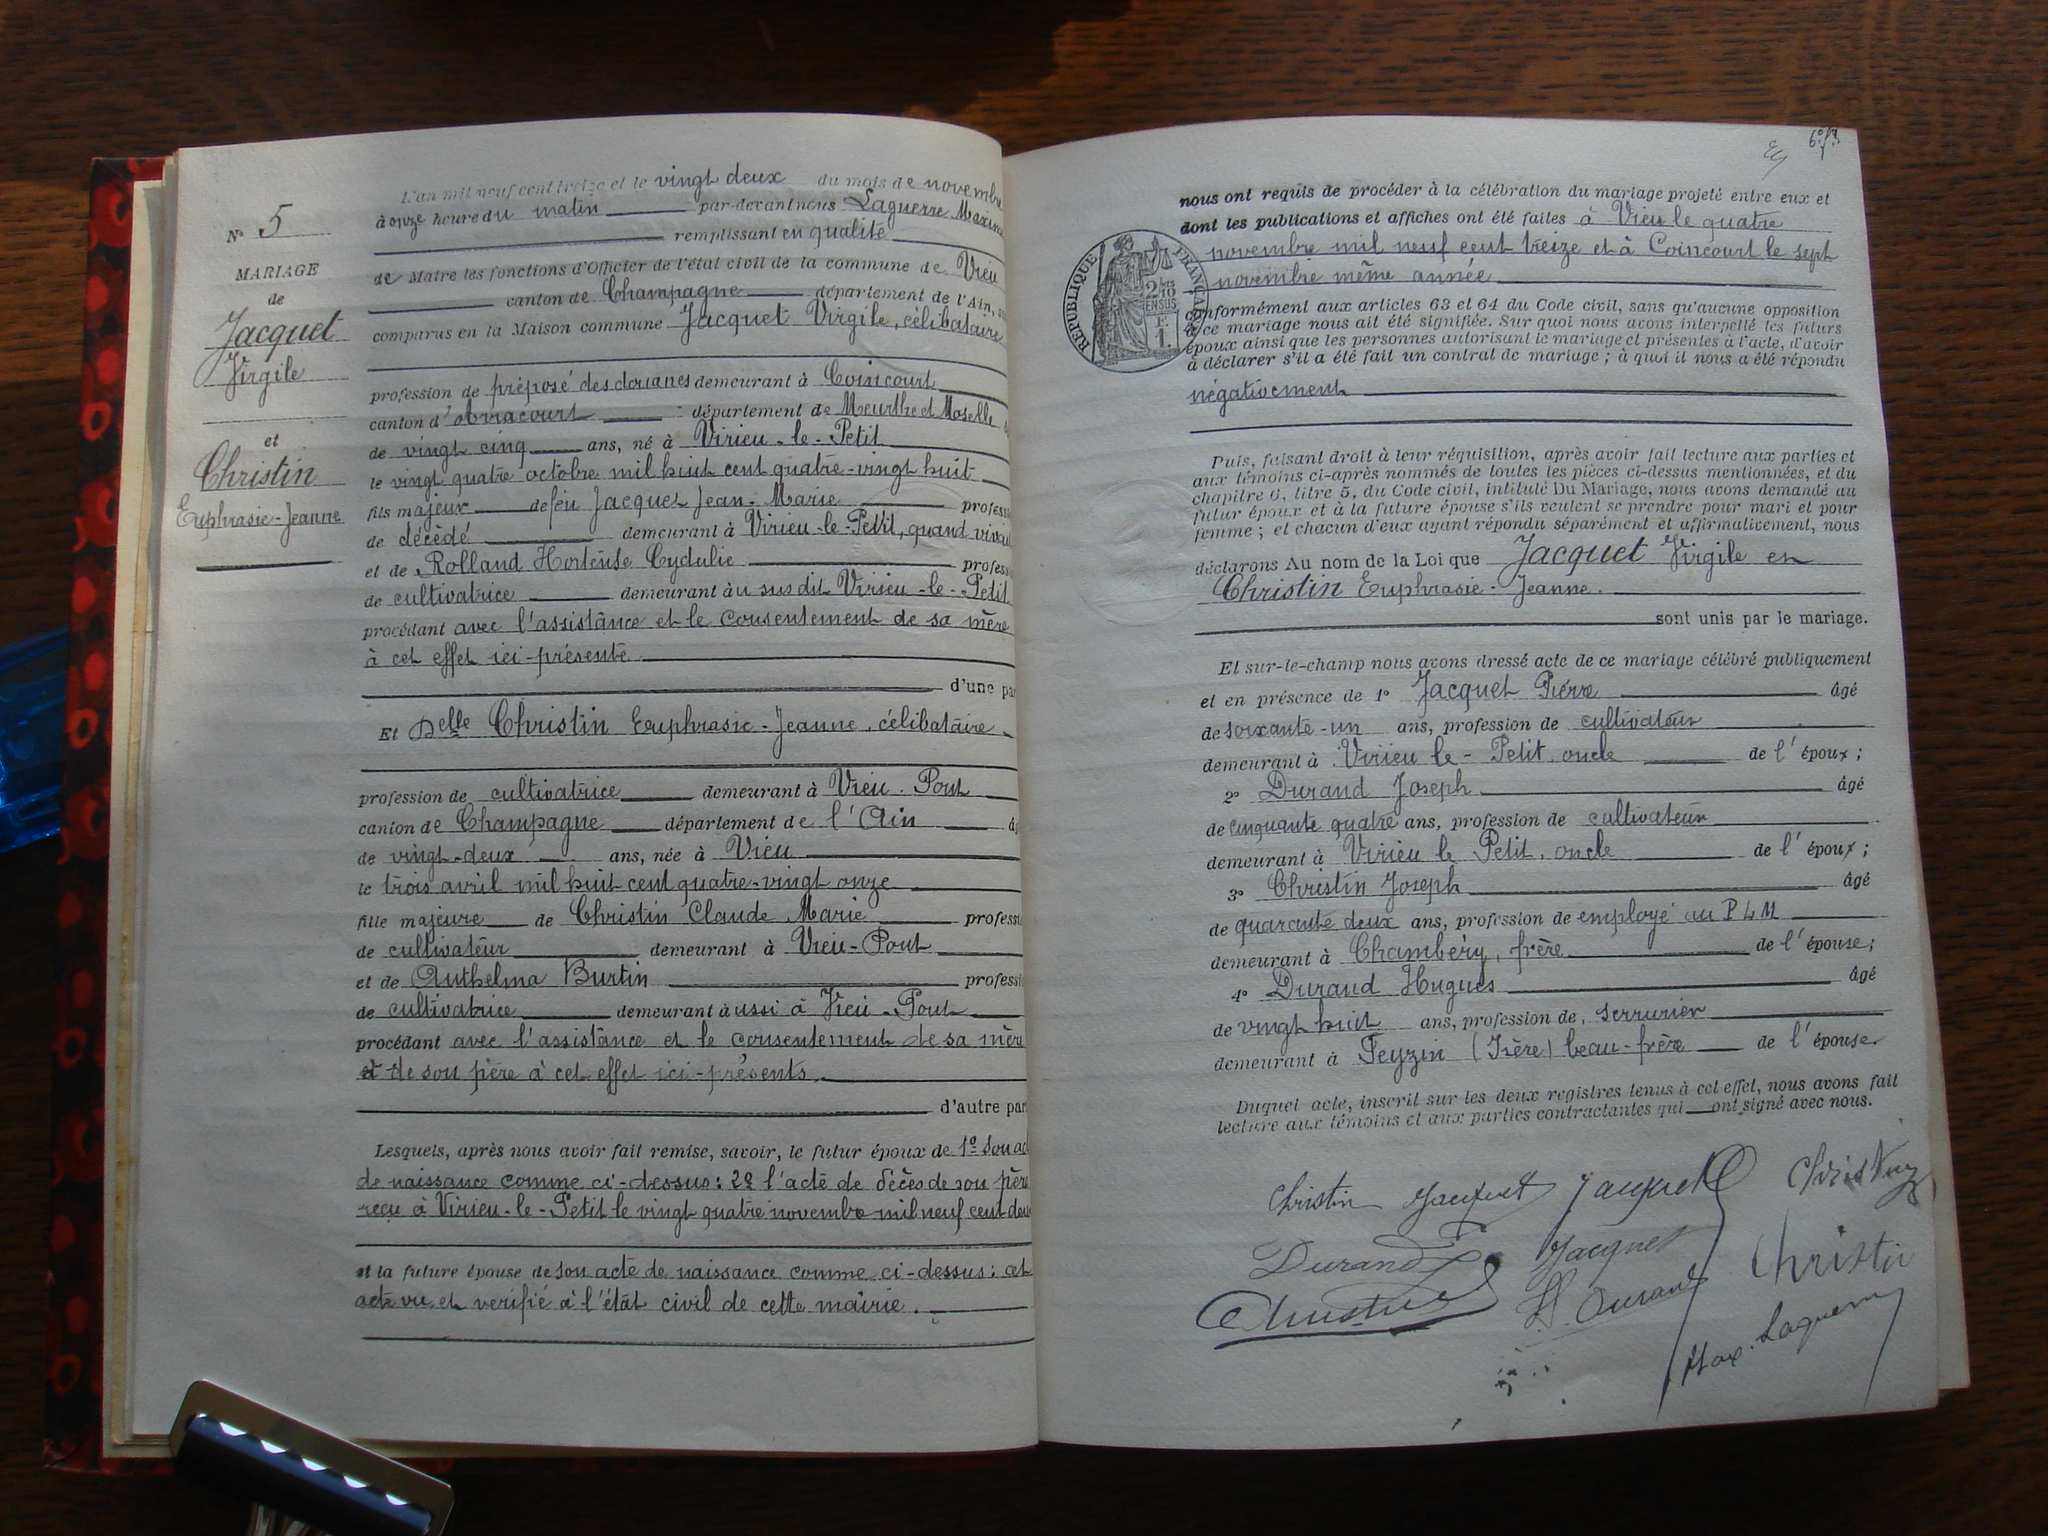 L'an mil neuf cent treize et le vingt deux du mois de novembre
à onze heure du matin par-devant nous Laguerre Maxime
remplissant en qualité
de Maire les fonctions d'Officier de l'état civil de la commune de Vieu
canton de Champagne département de l'Ain,
comparus en la Maison commune Jacquet Virgile, célibataire
profession de préposé des douanes demeurant à Coincourt
canton d'Arracourt département de Meurthe et Moselle
de vingt cinq ans, né à Virieu-le-Petit
le vingt quatre octobre mil huit cent quatre-vingt huit
fils majeur de feu Jacquet Jean-Marie profess
de décédé demeurant à Virieu-le-Petit, quand vivai
et de Rolland Hortense Cydulie profess
de cultivatrice demeurant àu sus dit Virieu-le-Petit
procédant avec l'assistance et le consentement de sa mère
à cet effet ici-présente
d'une par
Et Delle Christin Euphrasie-Jeanne, célibataire
profession de cultivatrice demeurant à Vieu-Pont
canton de Champagne département de l'Ain
de vingt-deux ans, née à Vieu
le trois avril mil huit cent quatre-vingt onze
fille majeure de Christin Claude Marie profess
de cultivateur demeurant à Vieu-Pont
et de Anthelma Burtin profess
de cultivatrice demeurant àussi à Vieu-Pont
procédant avec l'assistance et le consentement de sa mère
et de son père à cet effet ici-présents.
d'autre par
Lesquels, après nous avoir fait remise, savoir, le futur époux de 1º son ac
de naissance comme ci-dessus: 2º l'acte de décès de son père
reçu à Virieu-le-Petit le vingt quatre novembre mil neuf cent
et la future épouse de son acte de naissance comme ci-dessus: cet
acte vu et verifié à l'état civil de cette mairie.
Nº 5
MARIAGE
de
Jacquet
Virgile
et
Christin
Euphrasie-Jeanne
nous ont requis de procéder à la célébration du mariage projeté entre eux et
dont les publications et affiches ont été faites à Vieu le quatre
novembre mil neuf cent treize et à Coincourt le sept
novembre même année
conformément aux articles 63 et 64 du Code civil, sans qu'aucune opposition
à ce mariage nous ait été signifiée. Sur quoi nous avons interpellé les futurs
époux ainsi que les personnes autorisant le mariage et présentes à l'acte, d'avoir
à déclarer s'il a été fait un contrat de mariage; à quoi il nous a été répondu
négativement
RÉPUBLIQUE FRANÇAISE
Puis, faisant droit à leur réquisition, après avoir fait lecture aux parties et
aux témoins ci-après nommés de toutes les pièces ci-dessus mentionnées, et du
chapitre 6, titre 5, du Code civil, intitulé Du Mariage, nous avons demandé au
futur époux et à la future épouse s'ils veulent se prendre pour mari et pour
femme; et chacun d'eux ayant répondu séparément et affirmativement, nous
déclarons Au nom de la Loi que Jacquet Virgile en
Christin Euphrasie-Jeanne.
sont unis par le mariage.
Et sur-le-champ nous avons dressé acte de ce mariage célébré publiquement
et en présence de 1º Jacquet Pierre âgé
de soixante-un ans, profession de cultivateur
demeurant à Virieu le-Petit, oncle de l'époux;
2º Durand Joseph âgé
de cinquante quatre ans, profession de cultivateur
demeurant à Virieu le Petit, oncle de l'époux;
3º Christin Joseph âgé
de quarante deux ans, profession de employé au P L M
demeurant à Chambéry, frère de l'épouse;
4º Durand Hugues âgé
de vingt huit ans, profession de, serrurier
demeurant à Feyzin (Isère) beau-frère de l'épouse.
Duquel acte, inscrit sur les deux registres tenus à cet effet, nous avons fait
lecture aux témoins et aux parties contractantes qui ont signé avec nous.
Christin Jacquet Jacquet Christin
Durand Jacquet Christin
Christin H. Durand
Max. Laguerre